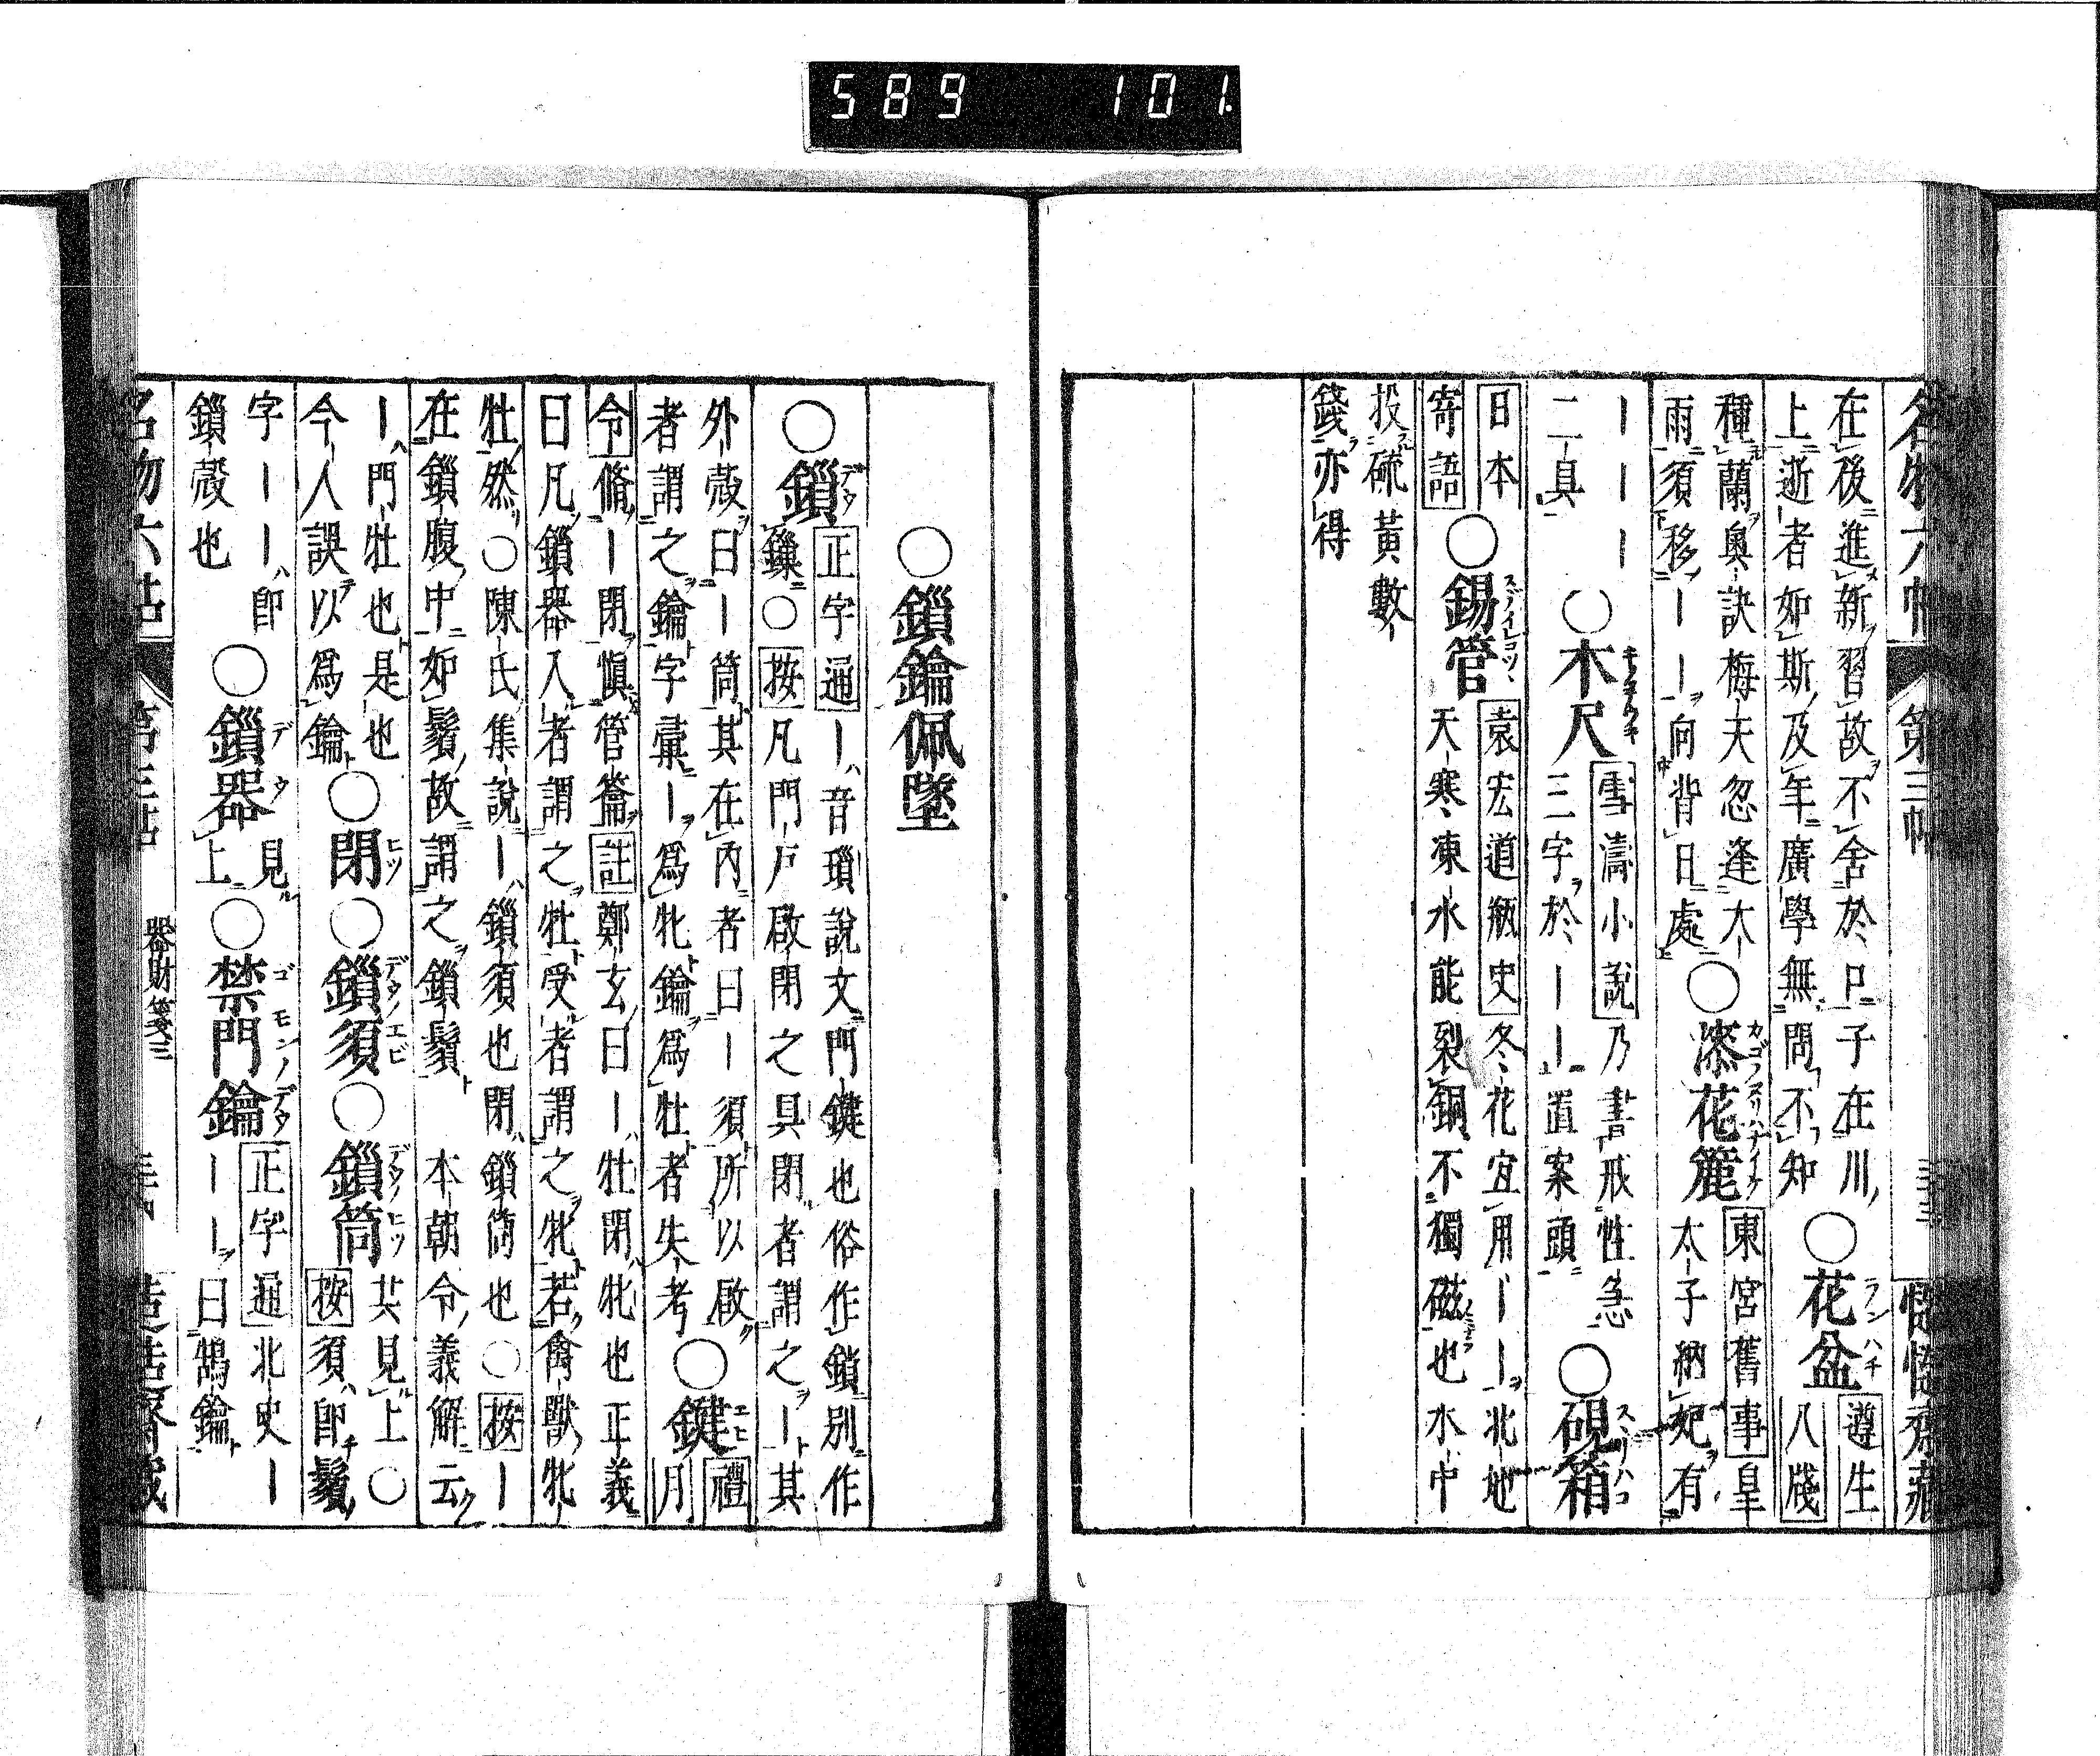 589 101
名物六帖 第三帖 三十三 慥慥齋藏
在後進新習故不舍於口子在川
上逝者如斯及年廣學無問不知
○花盆 ランハチ 遵生八牋
種蘭奧訣梅天忽逢大
雨須移｜｜向背日處
○漆花籠 東宮舊事 皇
太子納妃有
｜｜｜
二具
○木尺 雪濤小説 乃書戒性急
三字於｜｜置案頭
○硯箱 スヾリハコ
日本
寄語
○錫管 袁宏道瓶史 冬花宜用｜｜北地
天寒凍水能裂銅不獨磁也水中
投硫黃數
錢亦得
○鎻鑰佩墜
○鎻 正字通 ｜音瑣說文門鍵也俗作鎖別作
鏁○按凡門戶啟閉之具閉者謂之｜其
外殼曰｜筒其在內者曰｜須所以啟
者謂之鑰字彙｜爲牝鑰爲牡者失考
○鍵 禮月
令脩｜閉愼管籥註鄭玄曰｜牡閉牝也正義
曰凡鎖器入者謂之牡受者謂之牝若禽獸牝
牡然○陳氏集說｜鎻須也閉鎖筒也○按｜
在鎖腹中如鬚故謂之鎖鬚 本朝令義解云
｜門牡也是也
今人誤以爲鑰
○閉 ヒツ
○鎻須 デタノエビ
○鎻筒 デタノヒツ 其見上○
按須即鬚
字｜｜即
鎖殼也
○鎻器 デタ 見上
○禁門鑰 ゴモンノデタ 正字通 北史｜
｜｜曰鵠鑰
名物六帖 第三帖 器財箋三